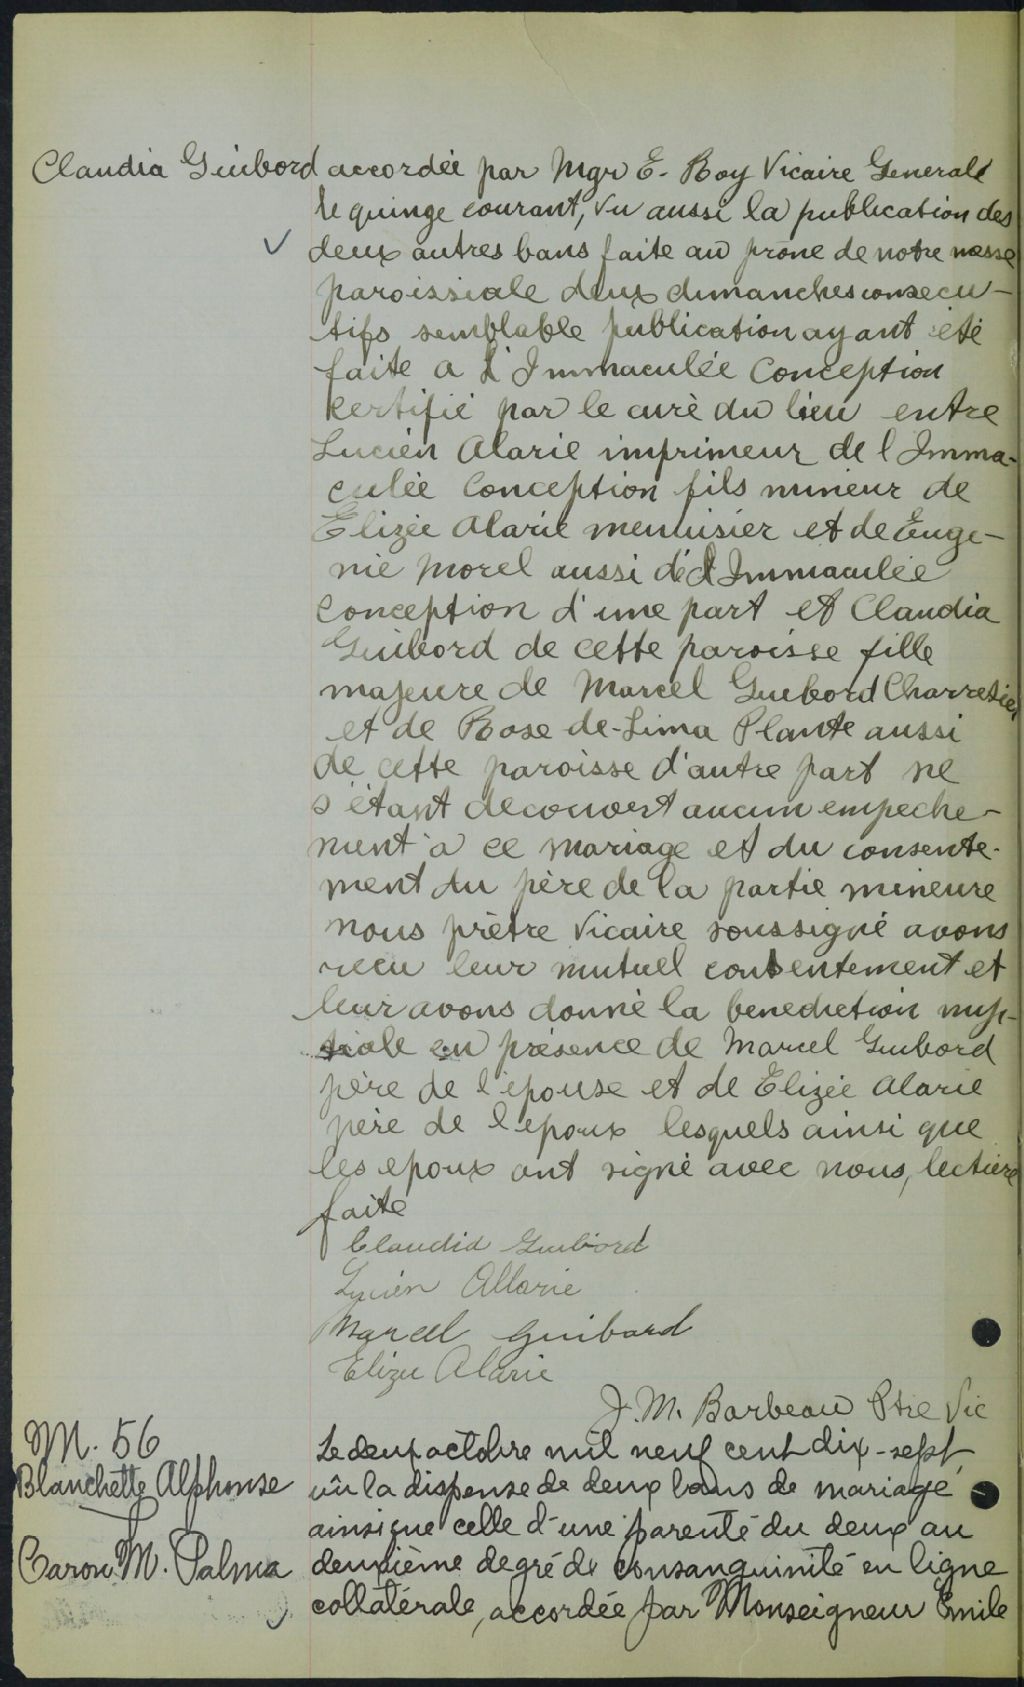 Claudia Guibord accordée par Mgr E. Roy Vicaire General
le quinze courant, vu aussi la publication des
deux autres bans faite au prône de notre messe
paroissiale deux dimanches consecu-
tifs semblable publication ayant été
faite a l'Immaculée Conception
certifié par le curè du lieu entre
Lucien Alarie imprimeur de l Imma-
culée Conception fils mineur de
Elizée Alarie menuisier et de Euge-
nie Morel aussi de l Immaculée
Conception d'une part et Claudia
Guibord de cette paroisse fille
majeure de Marcel Guibord Charretier
et de Rose-de-Lima Plante aussi
de cette paroisse d'autre part ne
s'étant decouvert aucun empeche-
ment à ce mariage et du consente-
ment du père de la partie mineure
nous prètre Vicaire soussigné avons
recu leur mutuel consentement et
leur avons donné la benediction nup-
tiale en présence de Marcel Guibord
père de l'épouse et de Elizée Alarie
père de l epoux lesquels ainsi que
les epoux ont signé avec nous, lecture
faite
Claudia Guibord
Lucien Allarie
Marcel Guibord
Elizée Alarie
J. M. Barbeau Ptre Vic
M. 56
Blanchette Alphonse
Caron M. Palma
Le deux octobre mil neuf cent dix-sept,
vû la dispense de deux bans de mariage
ainsi que celle d'une parenté du deux au
deuxième degré de consanguinité en ligne
collatérale, accordée par Monseigneur Emile